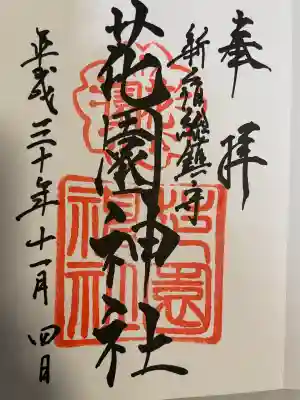 奉拝
新宿総鎮守
花園神社
平成三十年十一月四日
花園神社